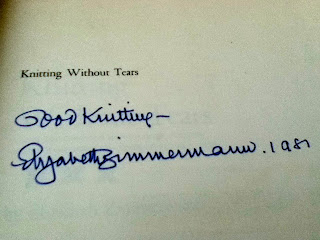 Knitting Without Tears
Good Knitting –
Elizabeth Zimmermann. 1981